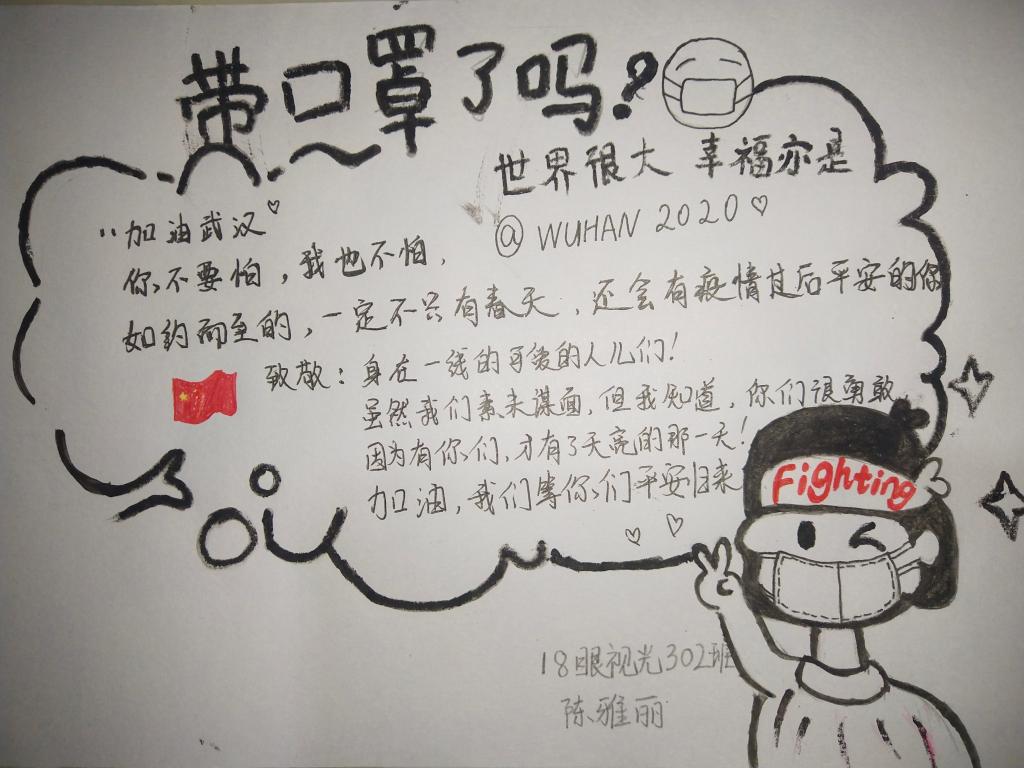 带口罩了吗?
世界很大 幸福亦是
@ WUHAN 2020
“加油武汉
你不要怕，我也不怕．
如约而至的，一定不只有春天．还会有疫情过后平安的你
致敬：身在一线的可爱的人儿们！
虽然我们素未谋面，但我知道，你们很勇敢
因为有你们，才有了天亮的那一天！
加油，我们等你们平安归来
Fighting
18眼视光302班
陈雅丽